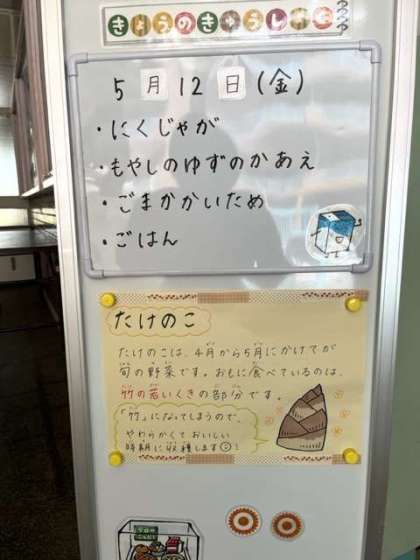 きょうのきゅうしょく
5月12日(金)
・にくじゃが
・もやしのゆずのかあえ
・ごまかかいため
・ごはん
たけのこ
たけのこは、4月から5月にかけてが
旬の野菜です。おもに食べているのは、
竹の若いくきの部分です。
「竹」になってしまうので、
やわらかくておいしい
時期に収穫します☺!